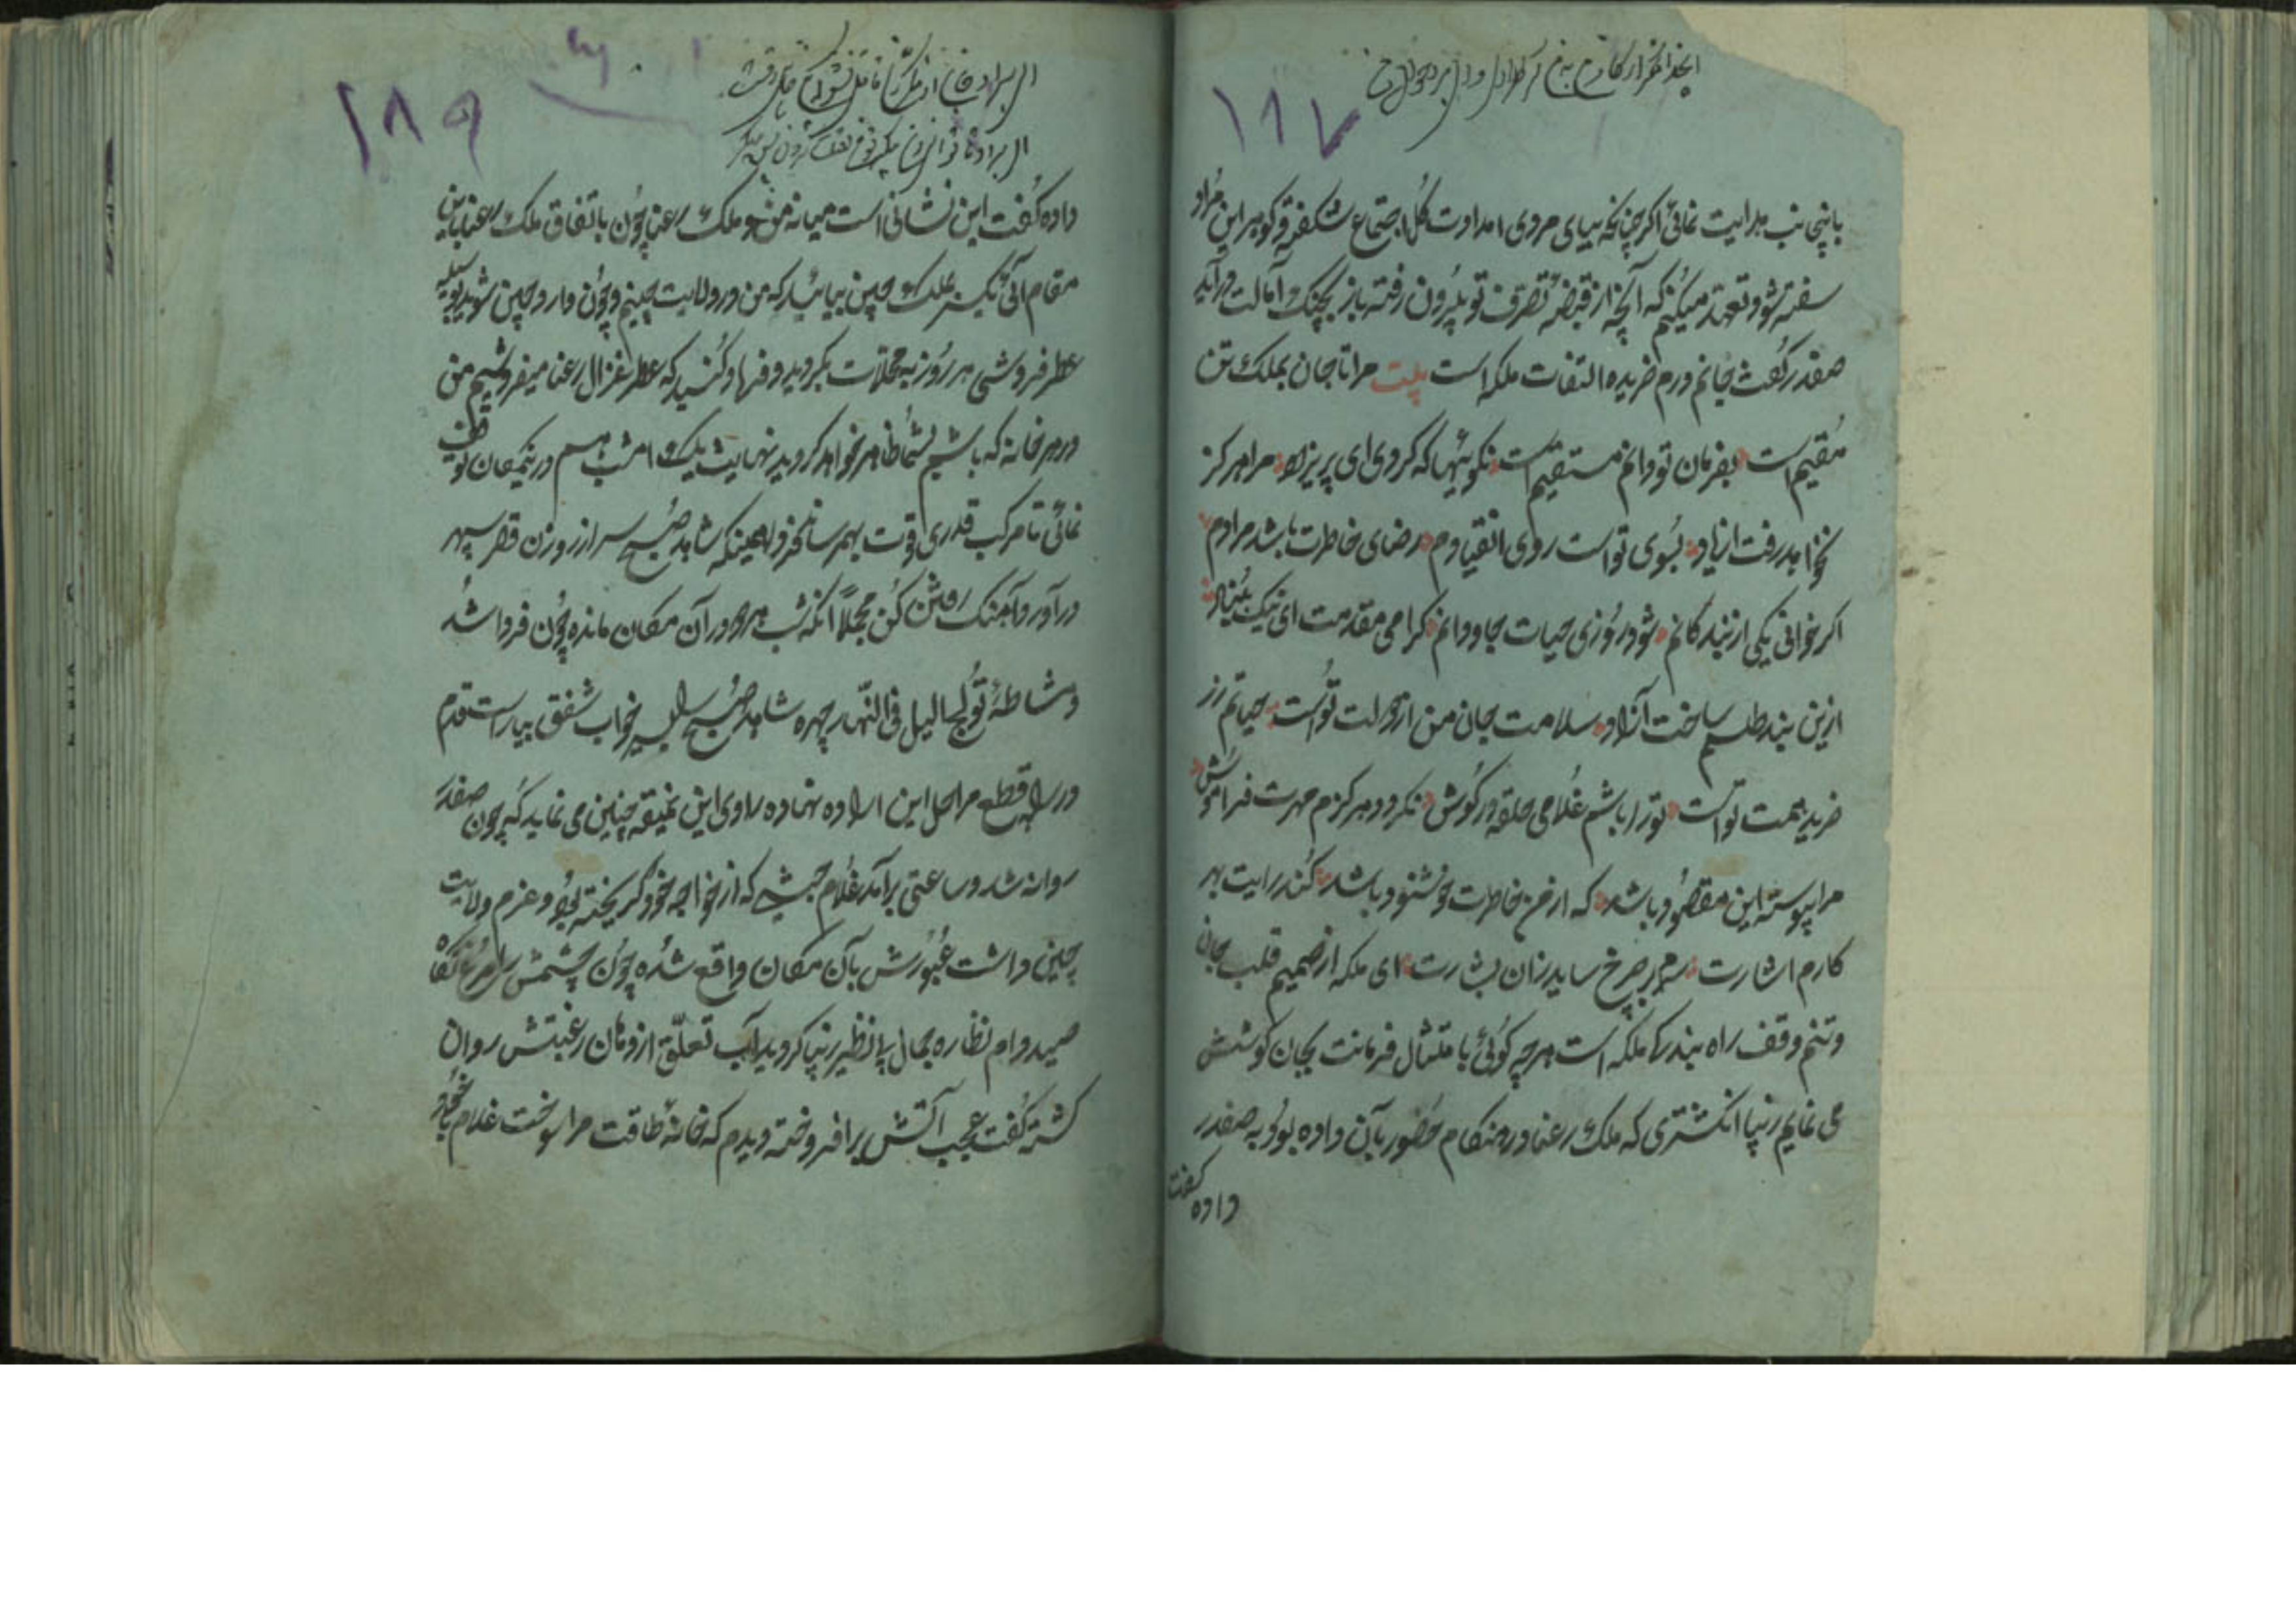 ۱۸۷
باینجانب هدایت نمائی اکر چنانکه بپای مردی امدادت کل اجتماع شکفته و کوهر این مراد
سفته شود تعهد میکنم که آنچه از قبضه تصرف تو بیرون رفته باز بچنک آمالت درآید
صفدر کفت جانم درم خریده التفات ملکه است بیت مرا تا جان بملک تن
مقیم است بفرمان تو دانم مستقیم است نکوئیها که کردی ای پریزاد مرا هرکز
نخواهد رفت از یاد بسوی تو است روی انقیادم رضای خاطرت باشد مرادم
اکر خوانی یکی از بندکانم شود روزی حیات جاودانم کرامی مقدمت ای نیک بنیاد
ازین بند طلسم ساخت آزاد سلامت جان من از دولت تو است حیاتم زر
خرید همت تو است تو را باشم غلامی حلقه در کوش نکردد هرکزم مهرت فراموش
مرا پیوسته این مقصود باشد که از من خاطرت خوشنود باشد کند رایت بهر
کارم اشارت سرم بر چرخ ساید زان بشارت ای ملکه از صمیم قلب جان
و تنم وقف راه بندکی ملکه است هرچه کوئی بامتثال فرمانت بجان کوشش
می نمایم زیبا انکشتری که ملک رعنا در هنکام حضور بآن داده بود به صفدر
داده کفت
۱۸۹
داده کفت این نشانی است میانه من و ملک رعنا چون باتفاق ملک رعنا باین
مقام آئی یکسر بملک چین بیائید که من در ولایت چینم و چون وارد چین شوید بوسیله
عطر فروشی هر روز به محلات بکردید و فریاد کنید که عطر غزال رعنا میفروشیم من
در هر خانه که باشم بشما ظاهر خواهم کردید نهایت یک امشب هم در این مکان توقف
نمائی تا مرکب قدری قوت بهم رساند فردا همینکه شاهد صبح سر از روزن قصر سپهر
درآورد آهنک رفتن کن مجملا آنکه شب هم در آن مکان مانده چون فردا شد
و مشاطه تولج الیل فی النهار چهره شاهد صبح را بسرخاب شفق بیاراست قدم
در راه قطع مراحل این اراده نهاده راوی این نمیقه چنین می نماید که چون صفدر
روانه شد و ساعتی برآمد غلام حبشی که از خواجه خود کریخته بود و عزم ولایت
چین داشت عبورش بآن مکان واقع شده چون چشمش را مرغ نکاه
صید دام نظاره جمال بی نظیر زیبا کردید آب تعلق از دهان رغبتش روان
کشته کفت عجب آتش برافروخته دیدم که خانه طاقت مرا سوخت غلام بخود